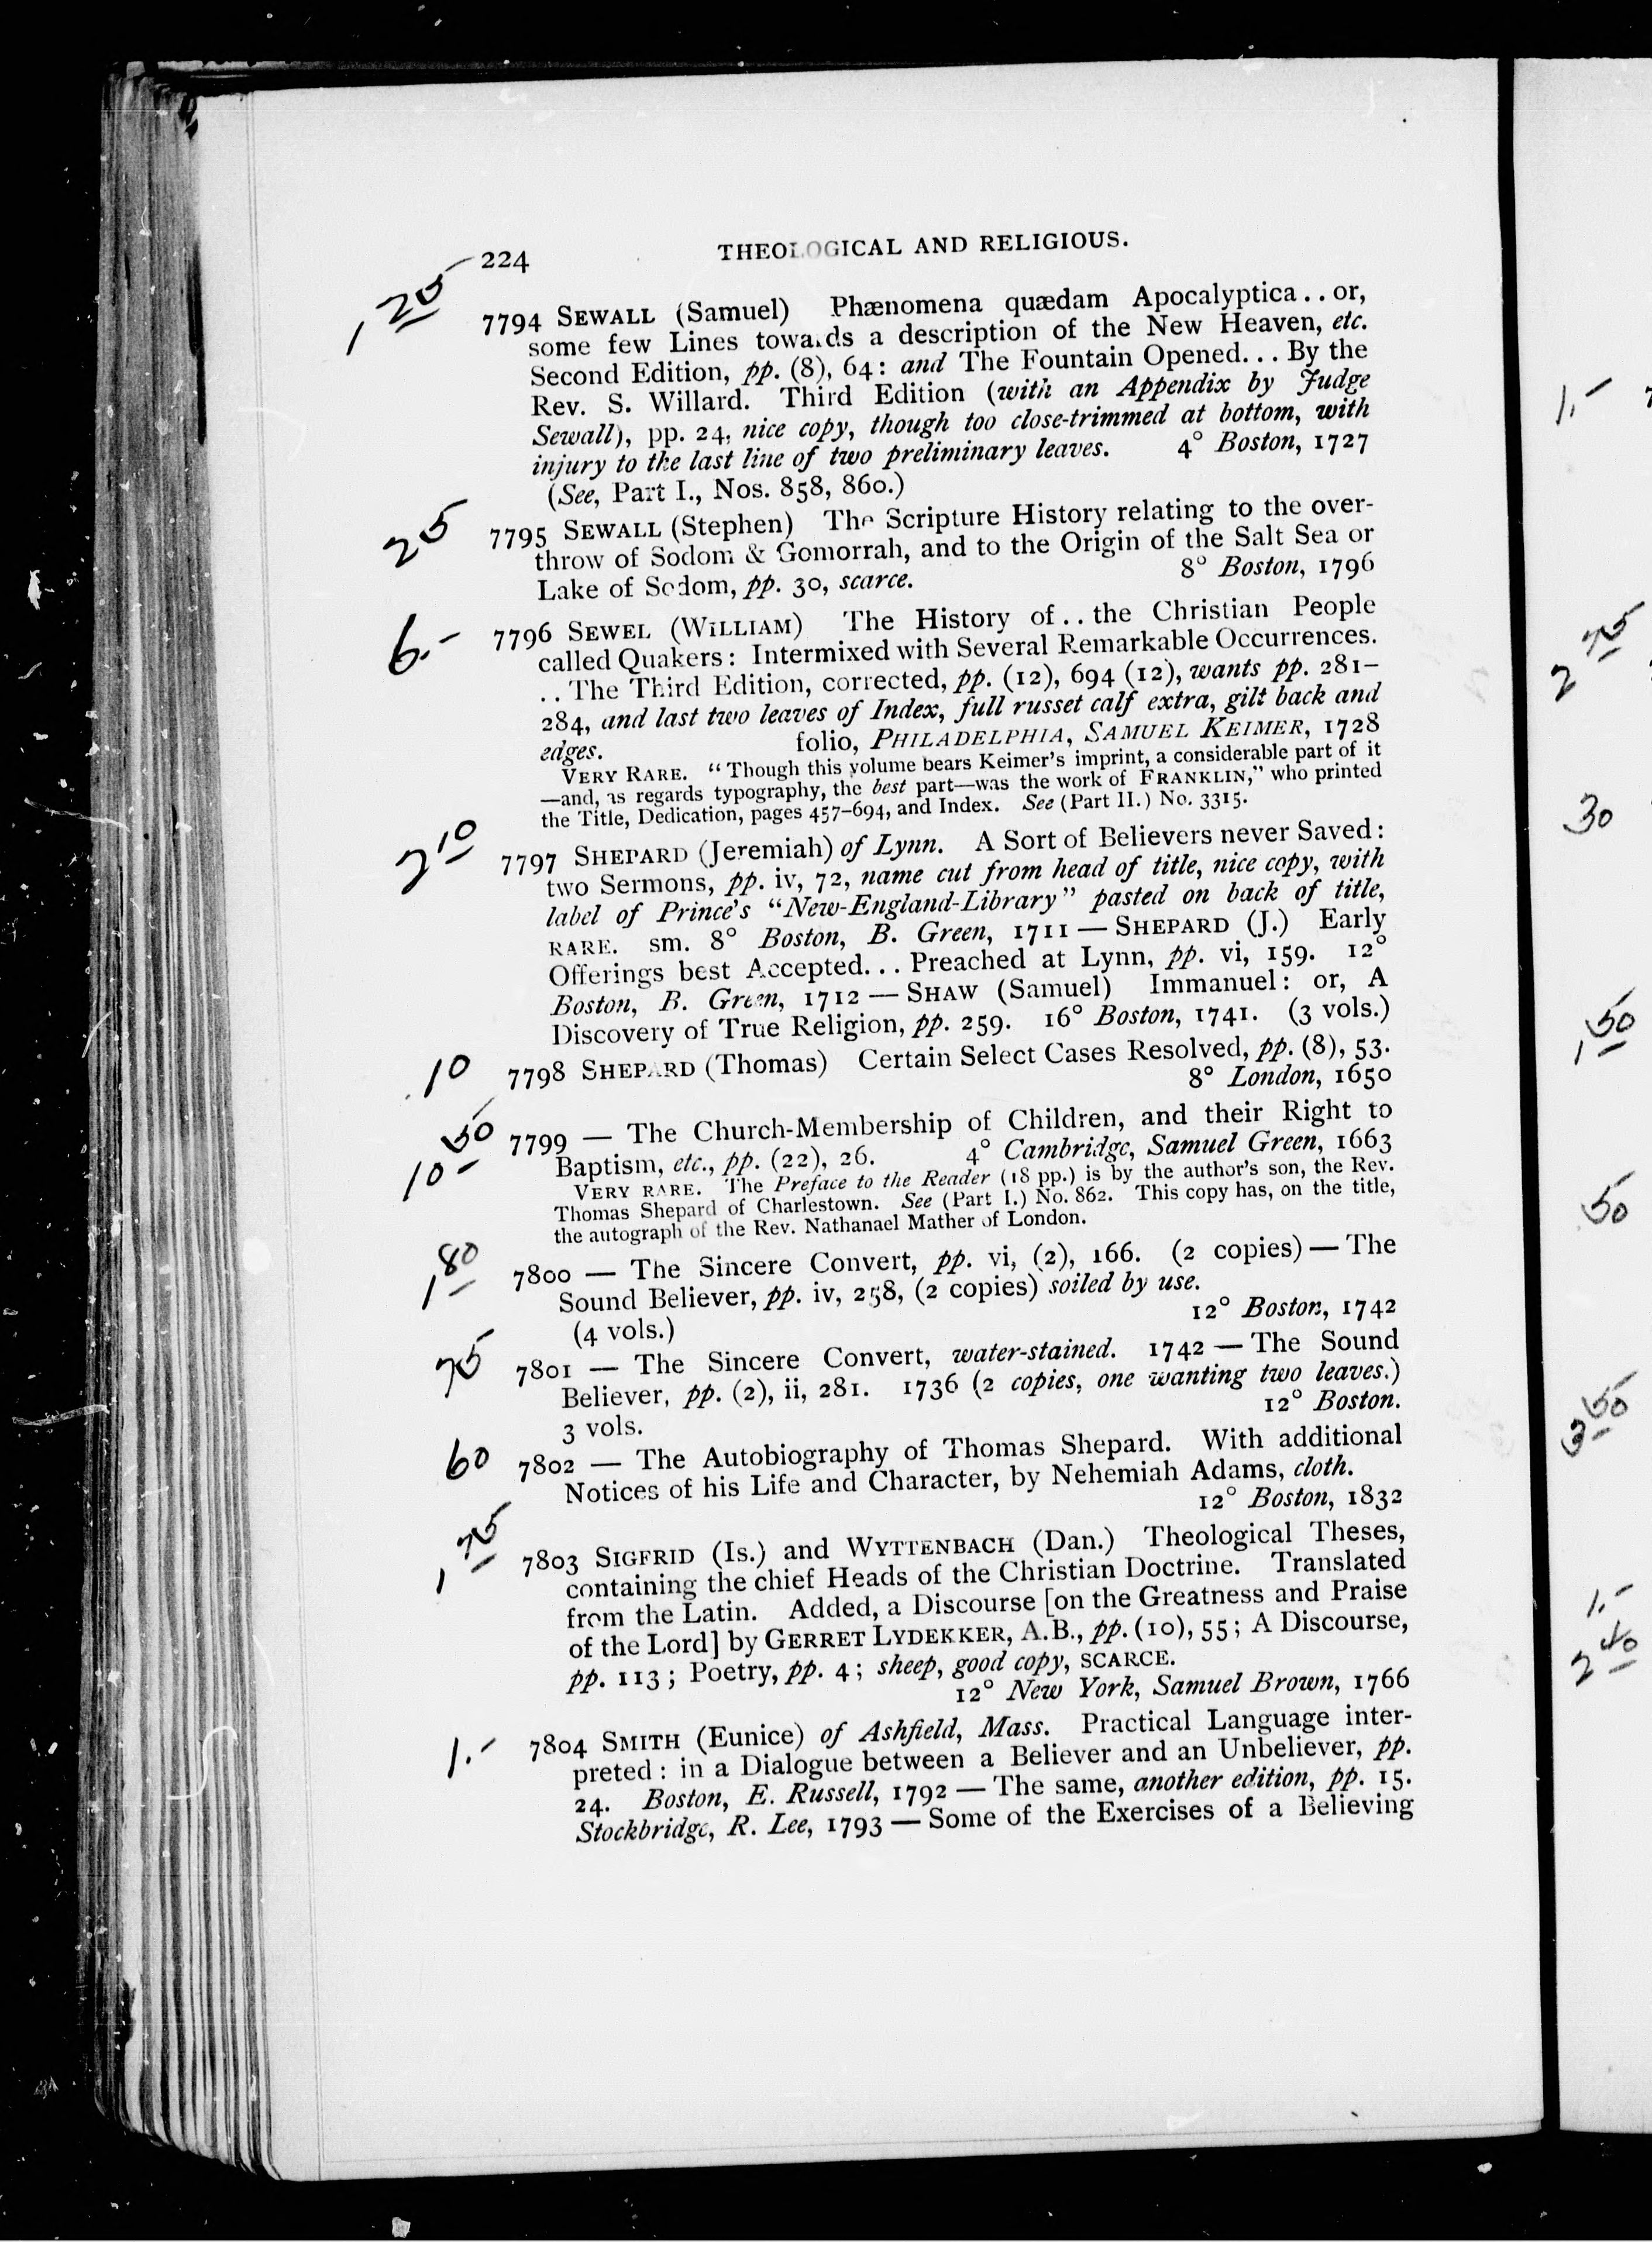 224 THEOLOGICAL AND RELIGIOUS.
1 25
7794 SEWALL (Samuel) Phænomena quædam Apocalyptica . . or,
some few Lines towards a description of the New Heaven, etc.
Second Edition, pp. (8), 64: and The Fountain Opened. . . By the
Rev. S. Willard. Third Edition (with an Appendix by Judge
Sewall), pp. 24, nice copy, though too close-trimmed at bottom, with
injury to the last line of two preliminary leaves. 4° Boston, 1727
(See, Part I., Nos. 858, 860.)
25
7795 SEWALL (Stephen) The Scripture History relating to the over-
throw of Sodom & Gomorrah, and to the Origin of the Salt Sea or
Lake of Sodom, pp. 30, scarce. 8° Boston, 1796
6.-
7796 SEWEL (WILLIAM) The History of . . the Christian People
called Quakers: Intermixed with Several Remarkable Occurrences.
. . The Third Edition, corrected, pp. (12), 694 (12), wants pp. 281–
284, and last two leaves of Index, full russet calf extra, gilt back and
edges. folio, PHILADELPHIA, SAMUEL KEIMER, 1728
VERY RARE. "Though this volume bears Keimer's imprint, a considerable part of it
—and, as regards typography, the best part—was the work of FRANKLIN," who printed
the Title, Dedication, pages 457–694, and Index. See (Part II.) No. 3315.
2 10
7797 SHEPARD (Jeremiah) of Lynn. A Sort of Believers never Saved:
two Sermons, pp. iv, 72, name cut from head of title, nice copy, with
label of Prince's "New-England-Library" pasted on back of title,
RARE. sm. 8° Boston, B. Green, 1711 — SHEPARD (J.) Early
Offerings best Accepted. . . Preached at Lynn, pp. vi, 159. 12°
Boston, B. Green, 1712 — SHAW (Samuel) Immanuel: or, A
Discovery of True Religion, pp. 259. 16° Boston, 1741. (3 vols.)
.10
7798 SHEPARD (Thomas) Certain Select Cases Resolved, pp. (8), 53.
8° London, 1650
10 50
7799 — The Church-Membership of Children, and their Right to
Baptism, etc., pp. (22), 26. 4° Cambridge, Samuel Green, 1663
VERY RARE. The Preface to the Reader (18 pp.) is by the author's son, the Rev.
Thomas Shepard of Charlestown. See (Part I.) No. 862. This copy has, on the title,
the autograph of the Rev. Nathanael Mather of London.
1 80
7800 — The Sincere Convert, pp. vi, (2), 166. (2 copies) — The
Sound Believer, pp. iv, 258, (2 copies) soiled by use.
(4 vols.) 12° Boston, 1742
75
7801 — The Sincere Convert, water-stained. 1742 — The Sound
Believer, pp. (2), ii, 281. 1736 (2 copies, one wanting two leaves.)
3 vols. 12° Boston.
60
7802 — The Autobiography of Thomas Shepard. With additional
Notices of his Life and Character, by Nehemiah Adams, cloth.
12° Boston, 1832
1 75
7803 SIGFRID (Is.) and WYTTENBACH (Dan.) Theological Theses,
containing the chief Heads of the Christian Doctrine. Translated
from the Latin. Added, a Discourse [on the Greatness and Praise
of the Lord] by GERRET LYDEKKER, A.B., pp. (10), 55; A Discourse,
pp. 113; Poetry, pp. 4; sheep, good copy, SCARCE.
12° New York, Samuel Brown, 1766
1.-
7804 SMITH (Eunice) of Ashfield, Mass. Practical Language inter-
preted: in a Dialogue between a Believer and an Unbeliever, pp.
24. Boston, E. Russell, 1792 — The same, another edition, pp. 15.
Stockbridge, R. Lee, 1793 — Some of the Exercises of a Believing
1.-
2 75
30
1 50
50
3 50
1.-
2 40